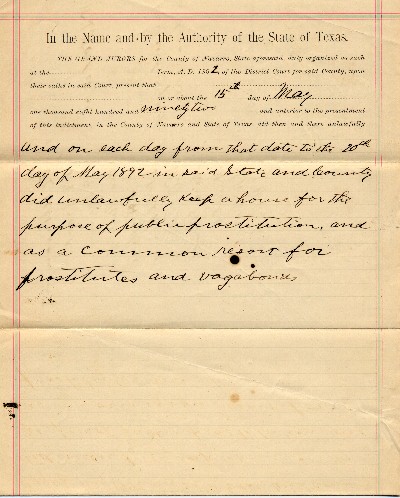 In the Name and by the Authority of the State of Texas.
THE GRAND JURORS for the County of Navarro, State aforesaid, duly organized as such
at the Term, A. D. 1892, of the District Court for said County, upon
their oaths in said Court, present that
on or about the 15th day of May
one thousand eight hundred and ninety two and anterior to the presentment
of this indictment, in the County of Navarro and State of Texas did then and there unlawfully
and on each day from that date to the 20th
day of May 1892 in said State and County
did unlawfully keep a house for the
purpose of public prostitution, and
as a common resort for
prostitutes and vagabonds